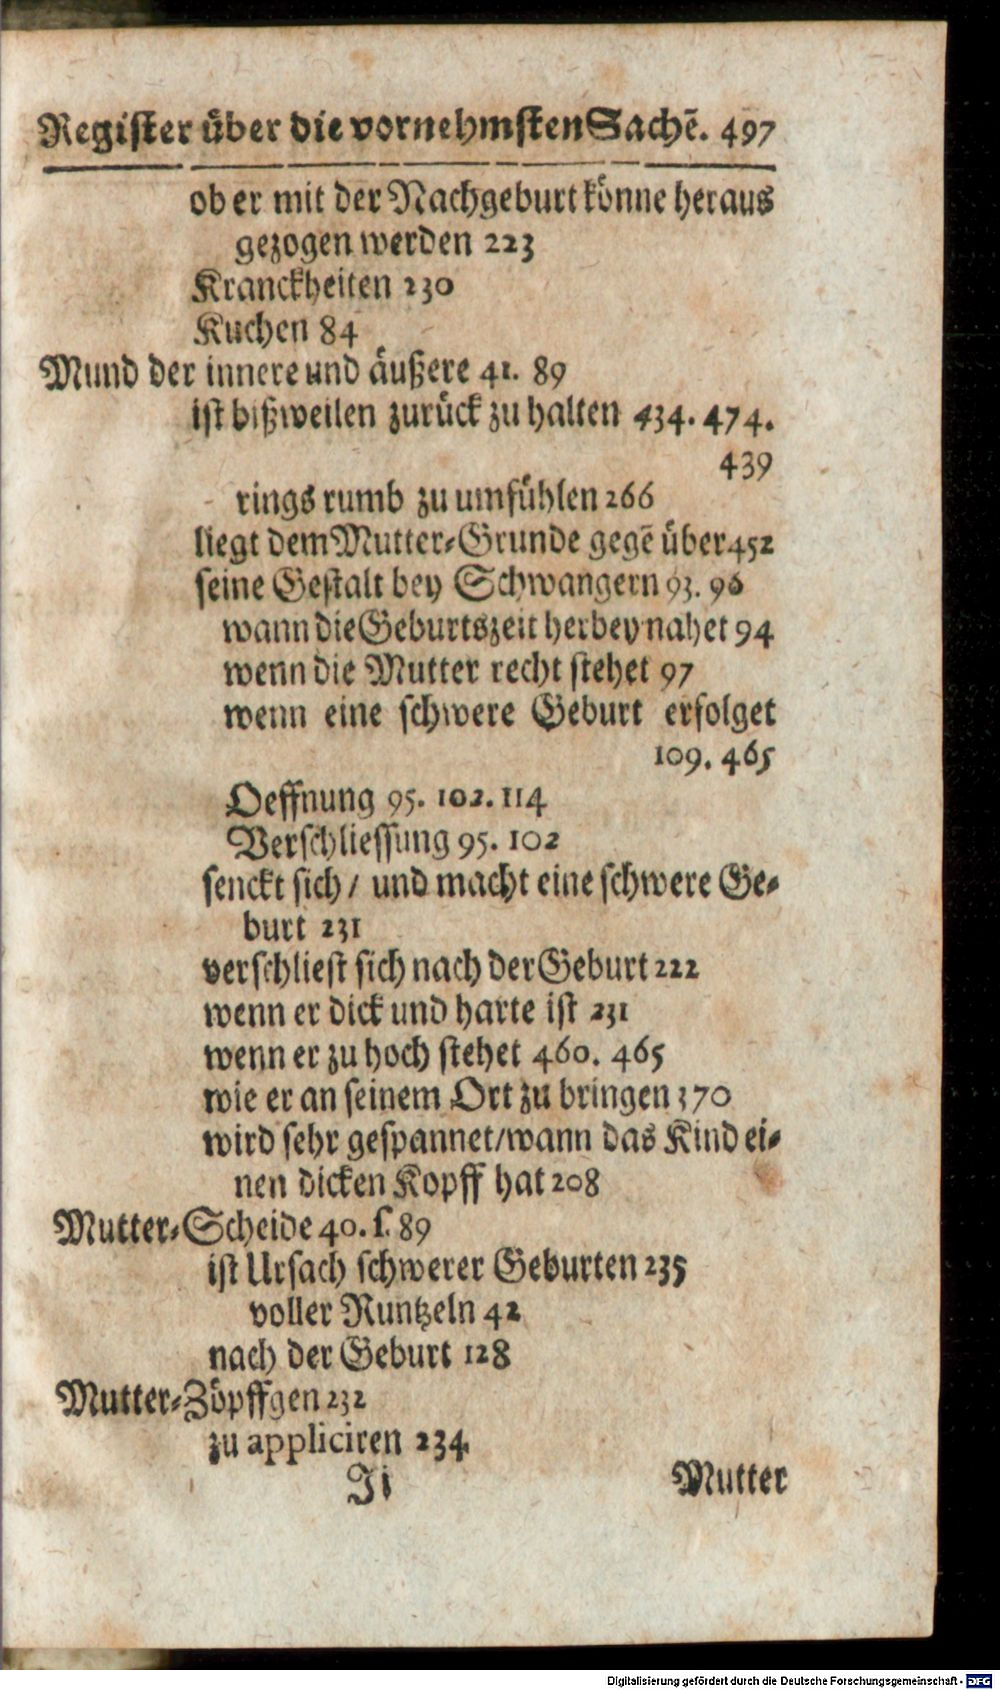 Register über die vornehmsten Sachē. 497
ob er mit der Nachgeburt könne heraus
gezogen werden 223
Kranckheiten 230
Kuchen 84
Mund der innere und äußere 41. 89
ist bißweilen zurück zu halten 434. 474.
439
rings rumb zu umfühlen 266
liegt dem Mutter-Grunde gegē über 452
seine Gestalt bey Schwangern 93. 96
wann die Geburtszeit herbey nahet 94
wenn die Mutter recht stehet 97
wenn eine schwere Geburt erfolget
109. 465
Oeffnung 95. 102. 114
Verschliessung 95. 102
senckt sich / und macht eine schwere Ge-
burt 231
verschliest sich nach der Geburt 222
wenn er dick und harte ist 231
wenn er zu hoch stehet 460. 465
wie er an seinem Ort zu bringen 370
wird sehr gespannet/wann das Kind ei-
nen dicken Kopff hat 208
Mutter-Scheide 40. s. 89
ist Ursach schwerer Geburten 235
voller Runtzeln 42
nach der Geburt 128
Mutter-Zöpffgen 232
zu appliciren 234
Ji Mutter
Digitalisierung gefördert durch die Deutsche Forschungsgemeinschaft - DFG